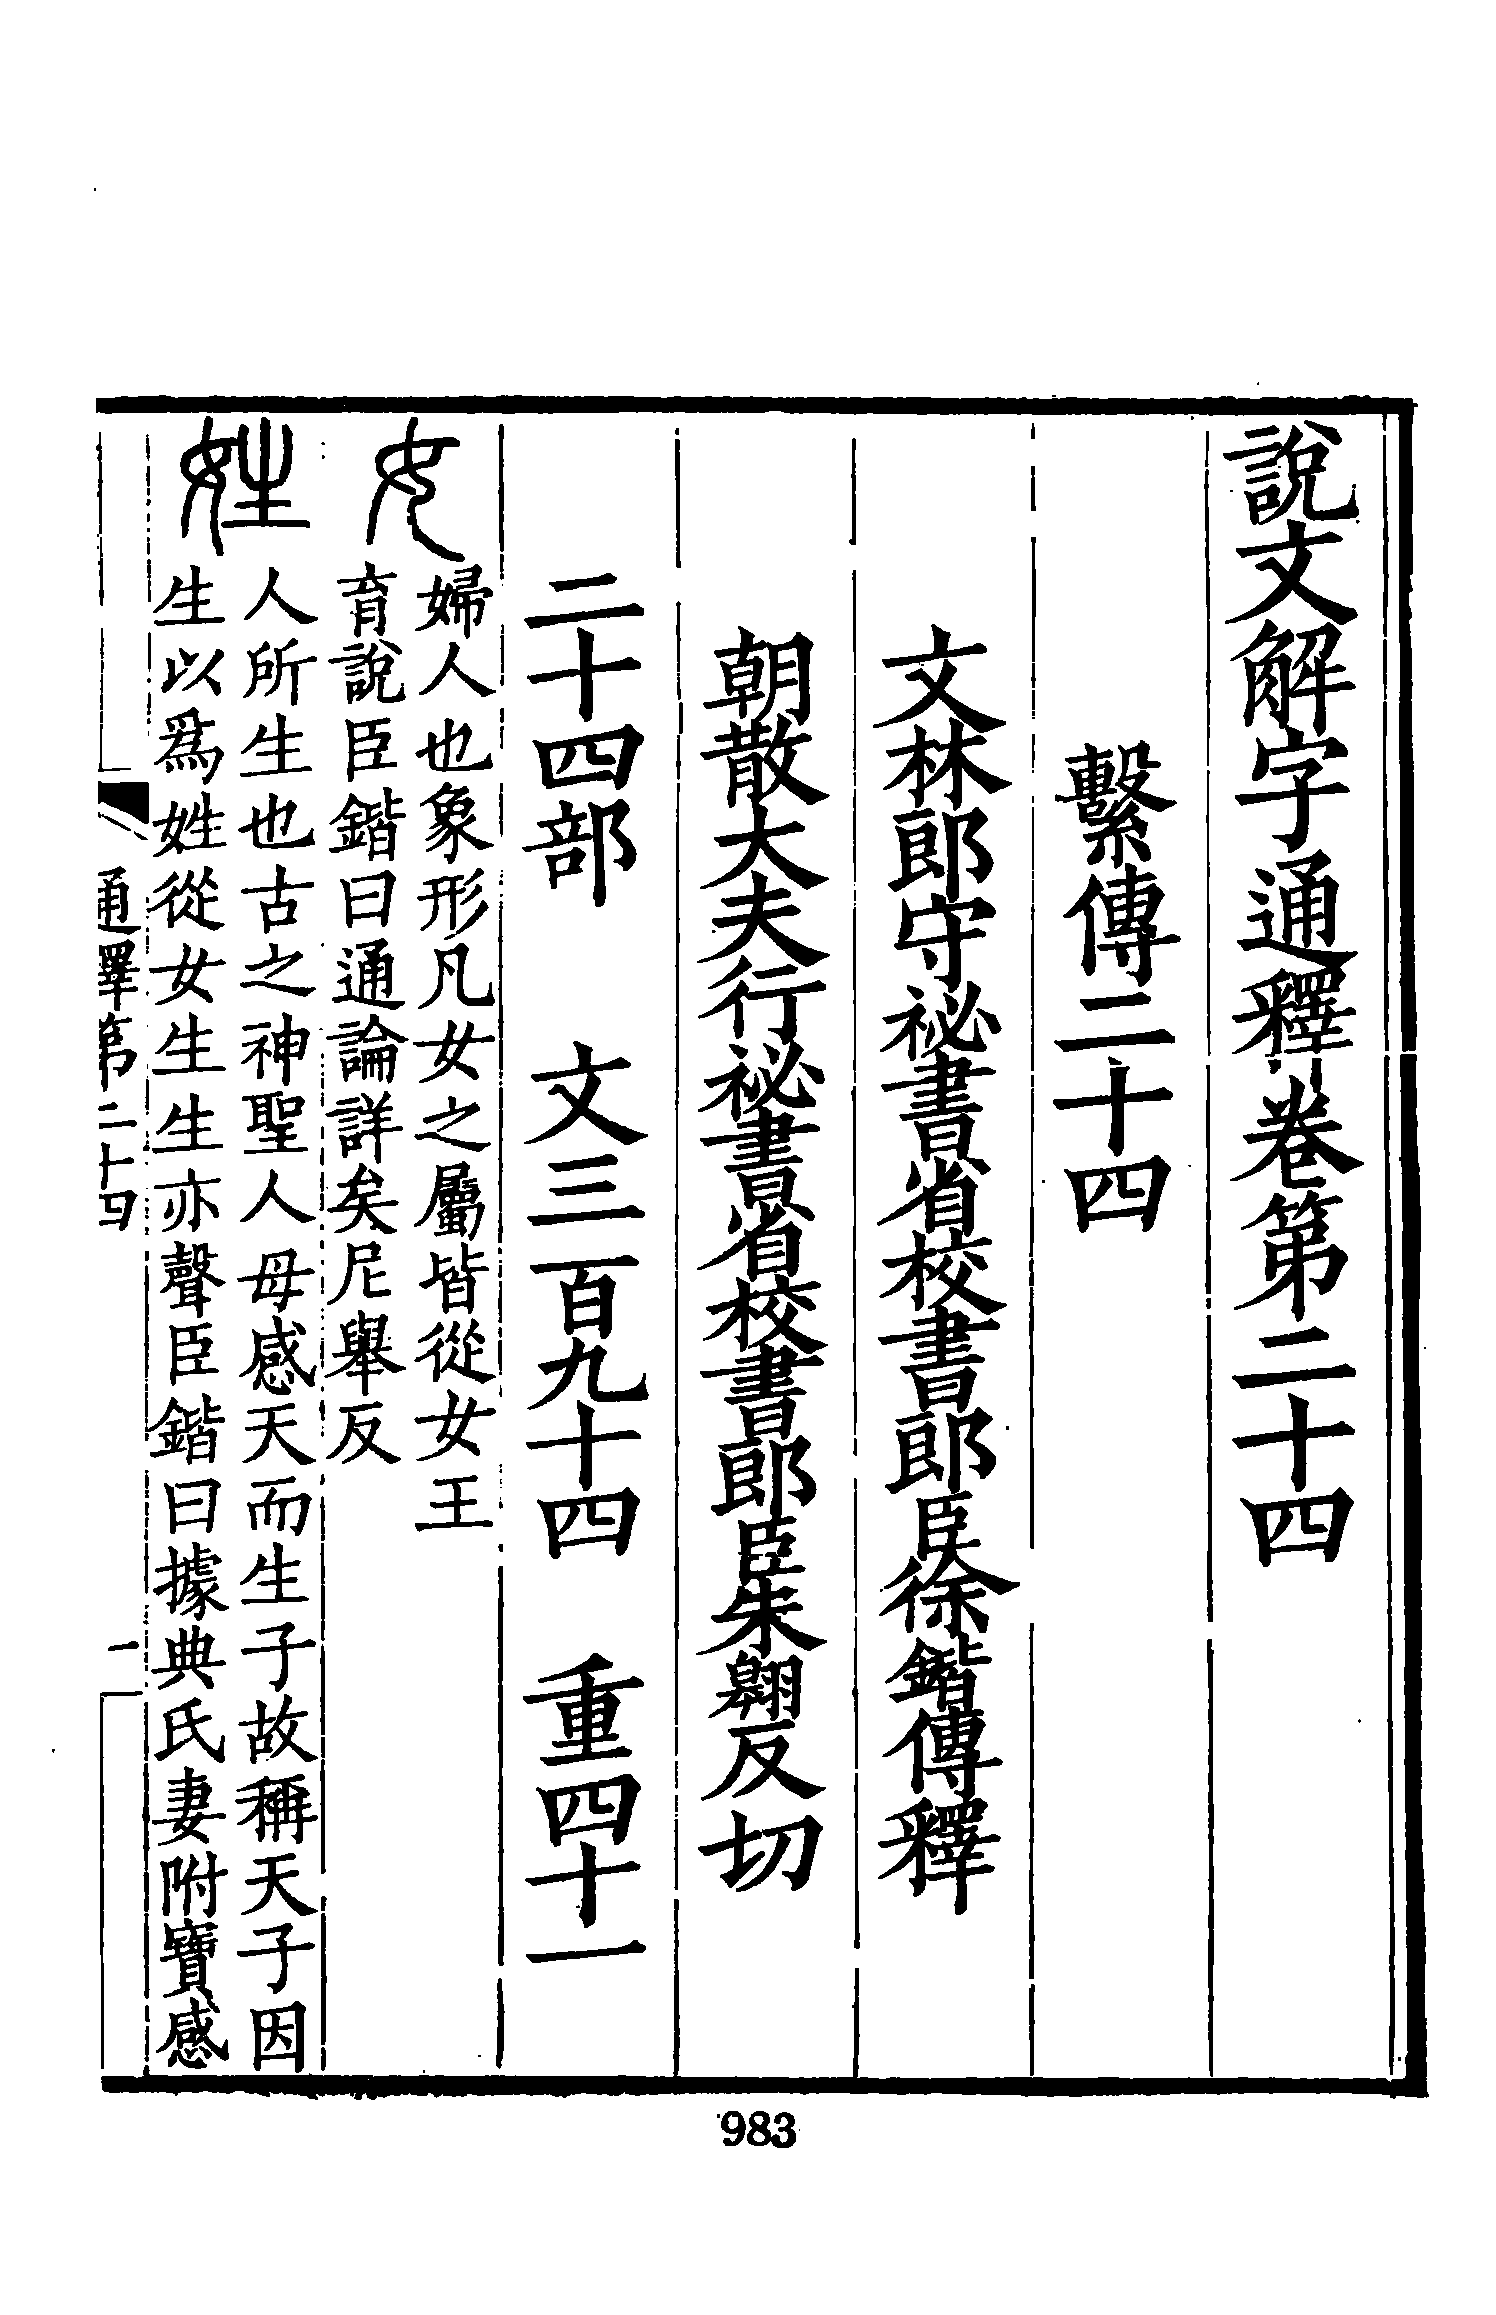 說文解字通釋卷第二十四
繫傳二十四
文林郎守祕書省校書郎臣徐鍇傳釋
朝散大夫行祕書省校書郎臣朱翱反切
二十四部　文三百九十四　重四十一
女
婦人也象形凡女之屬皆從女王
育說臣鍇曰通論詳矣尼舉反
姓
人所生也古之神聖人母感天而生子故稱天子因
生以爲姓從女生生亦聲臣鍇曰據典氏妻附寶感
通釋第二十四
一
983